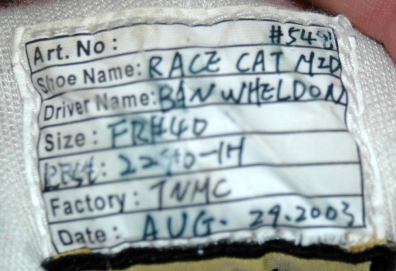 Art. No : #549
Shoe Name: RACE CAT MID
Driver Name: BAN WHELDON
Size : FR#40
22540-1H
Factory : TNMC
Date : AUG. 29.2003